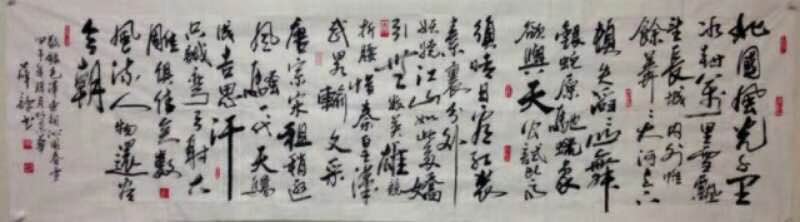 北國風光千里
冰封萬里雪飄
望長城内外惟
餘莽々大河上下
頓失滔々山舞
銀蛇原馳蠟象
欲與天公試比高
須晴日看紅裝
素裹分外
妖嬈江山如此多嬌
引無數英雄競
折腰惜秦皇漢
武略輸文采
唐宗宋祖稍遜
風騷一代天驕
成吉思汗
只識彎弓射大
雕俱往矣數
風流人物還看
今朝
敬錄毛澤東詞沁園春雪